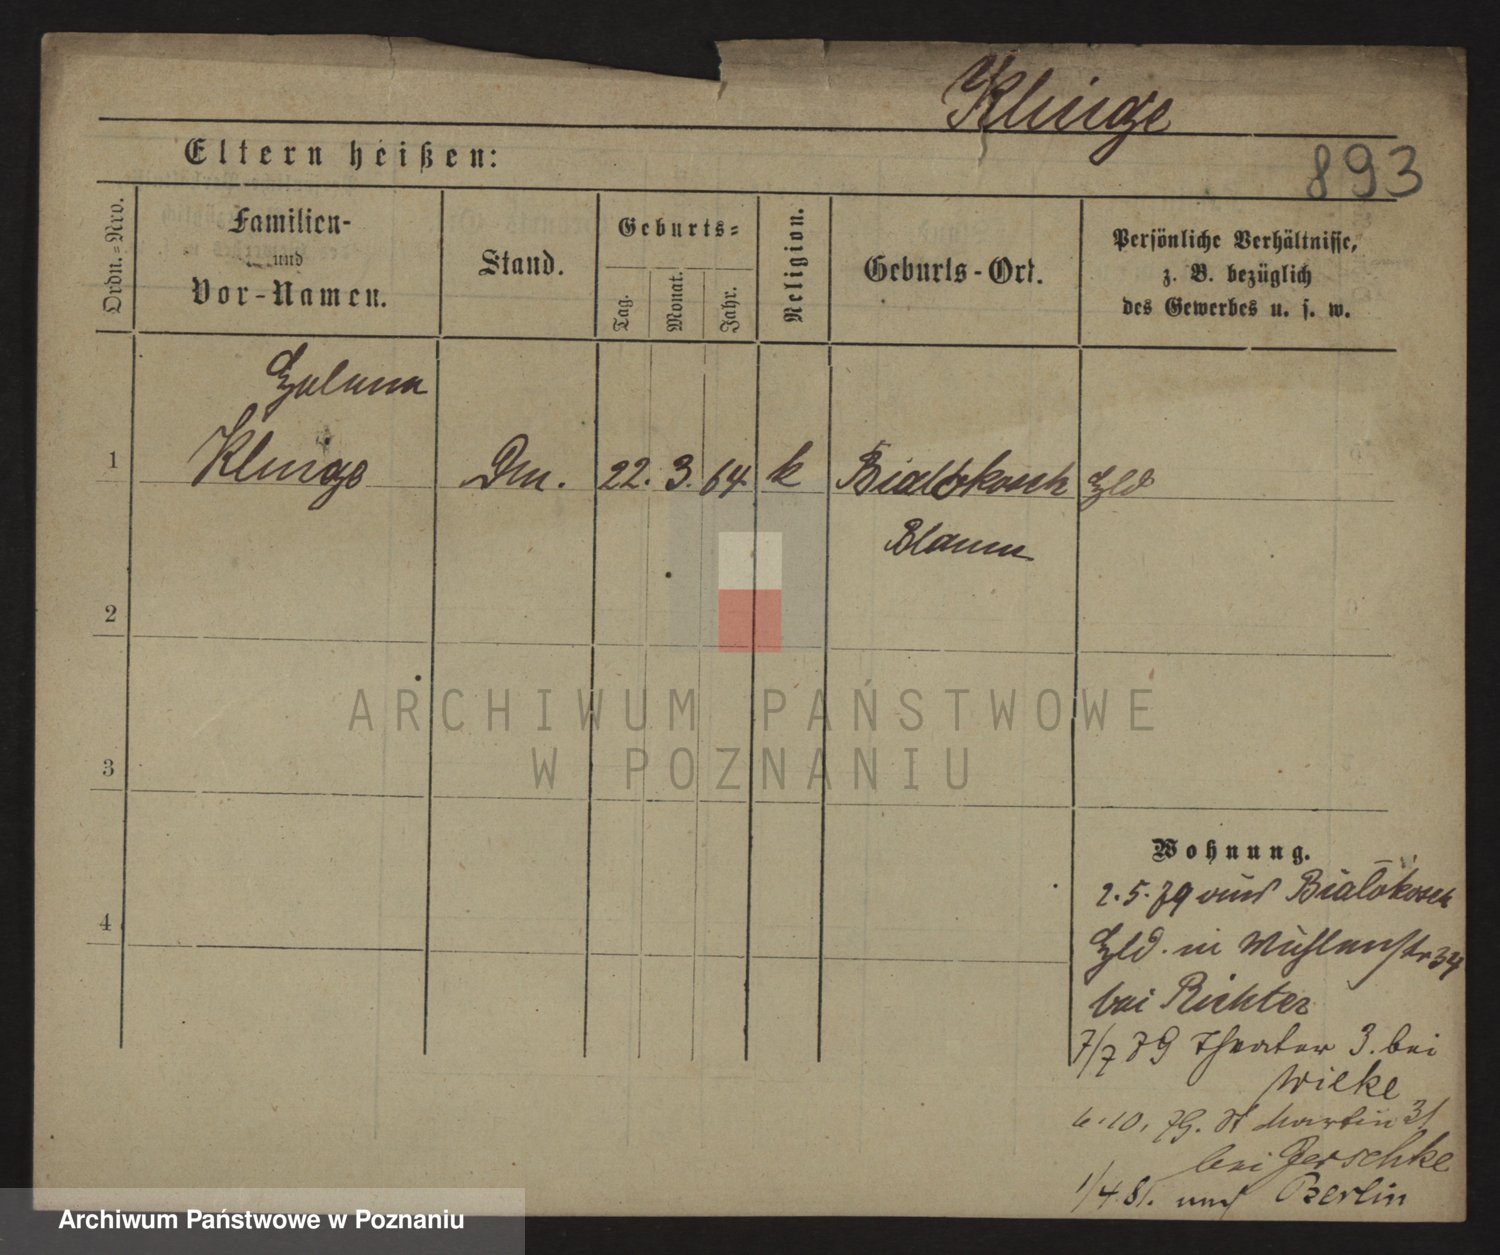 Klinge
893
Eltern heißen:
Ordn.=Nro.
Familien-
und
Vor-Namen.
Stand.
Geburts=
Tag.
Monat.
Jahr.
Religion.
Geburts-Ort.
Persönliche Verhältnisse,
z. B. bezüglich
des Gewerbes u. s. w.
Helena
1 Klinge Dm. 22. 3. 64 k Bialokosch Hld
2
3
4
ARCHIWUM PAŃSTWOWE
W POZNANIU
Wohnung.
2. 5. 79 aus Bialokosch
Hld. in Mühlenstr 34
bei Richter
7/7 79 Theater 3. bei
Wilke
6. 10. 79. St Martin 31
bei Gerschke
1/4 81. nach Berlin
Archiwum Państwowe w Poznaniu